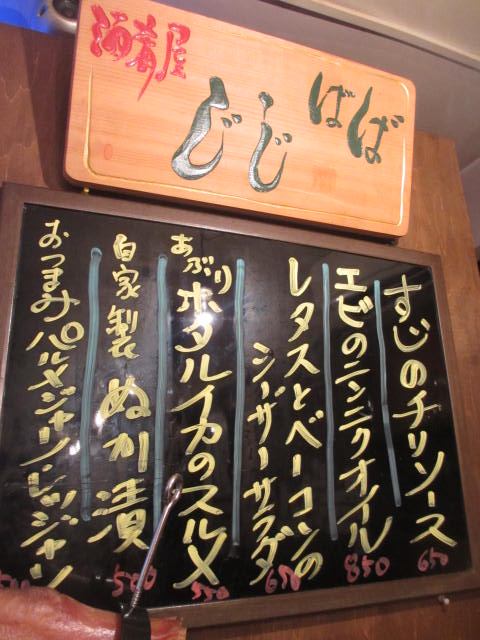 酒肴屋
ばば
じじ
すじのチリソース
650
エビのニンニクオイル
850
レタスとベーコンの
シーザーサラダ
650
あぶり
ホタルイカのスルメ
550
自家製ぬか漬
500
おつまみパルメジャーノ・レッジャーノ